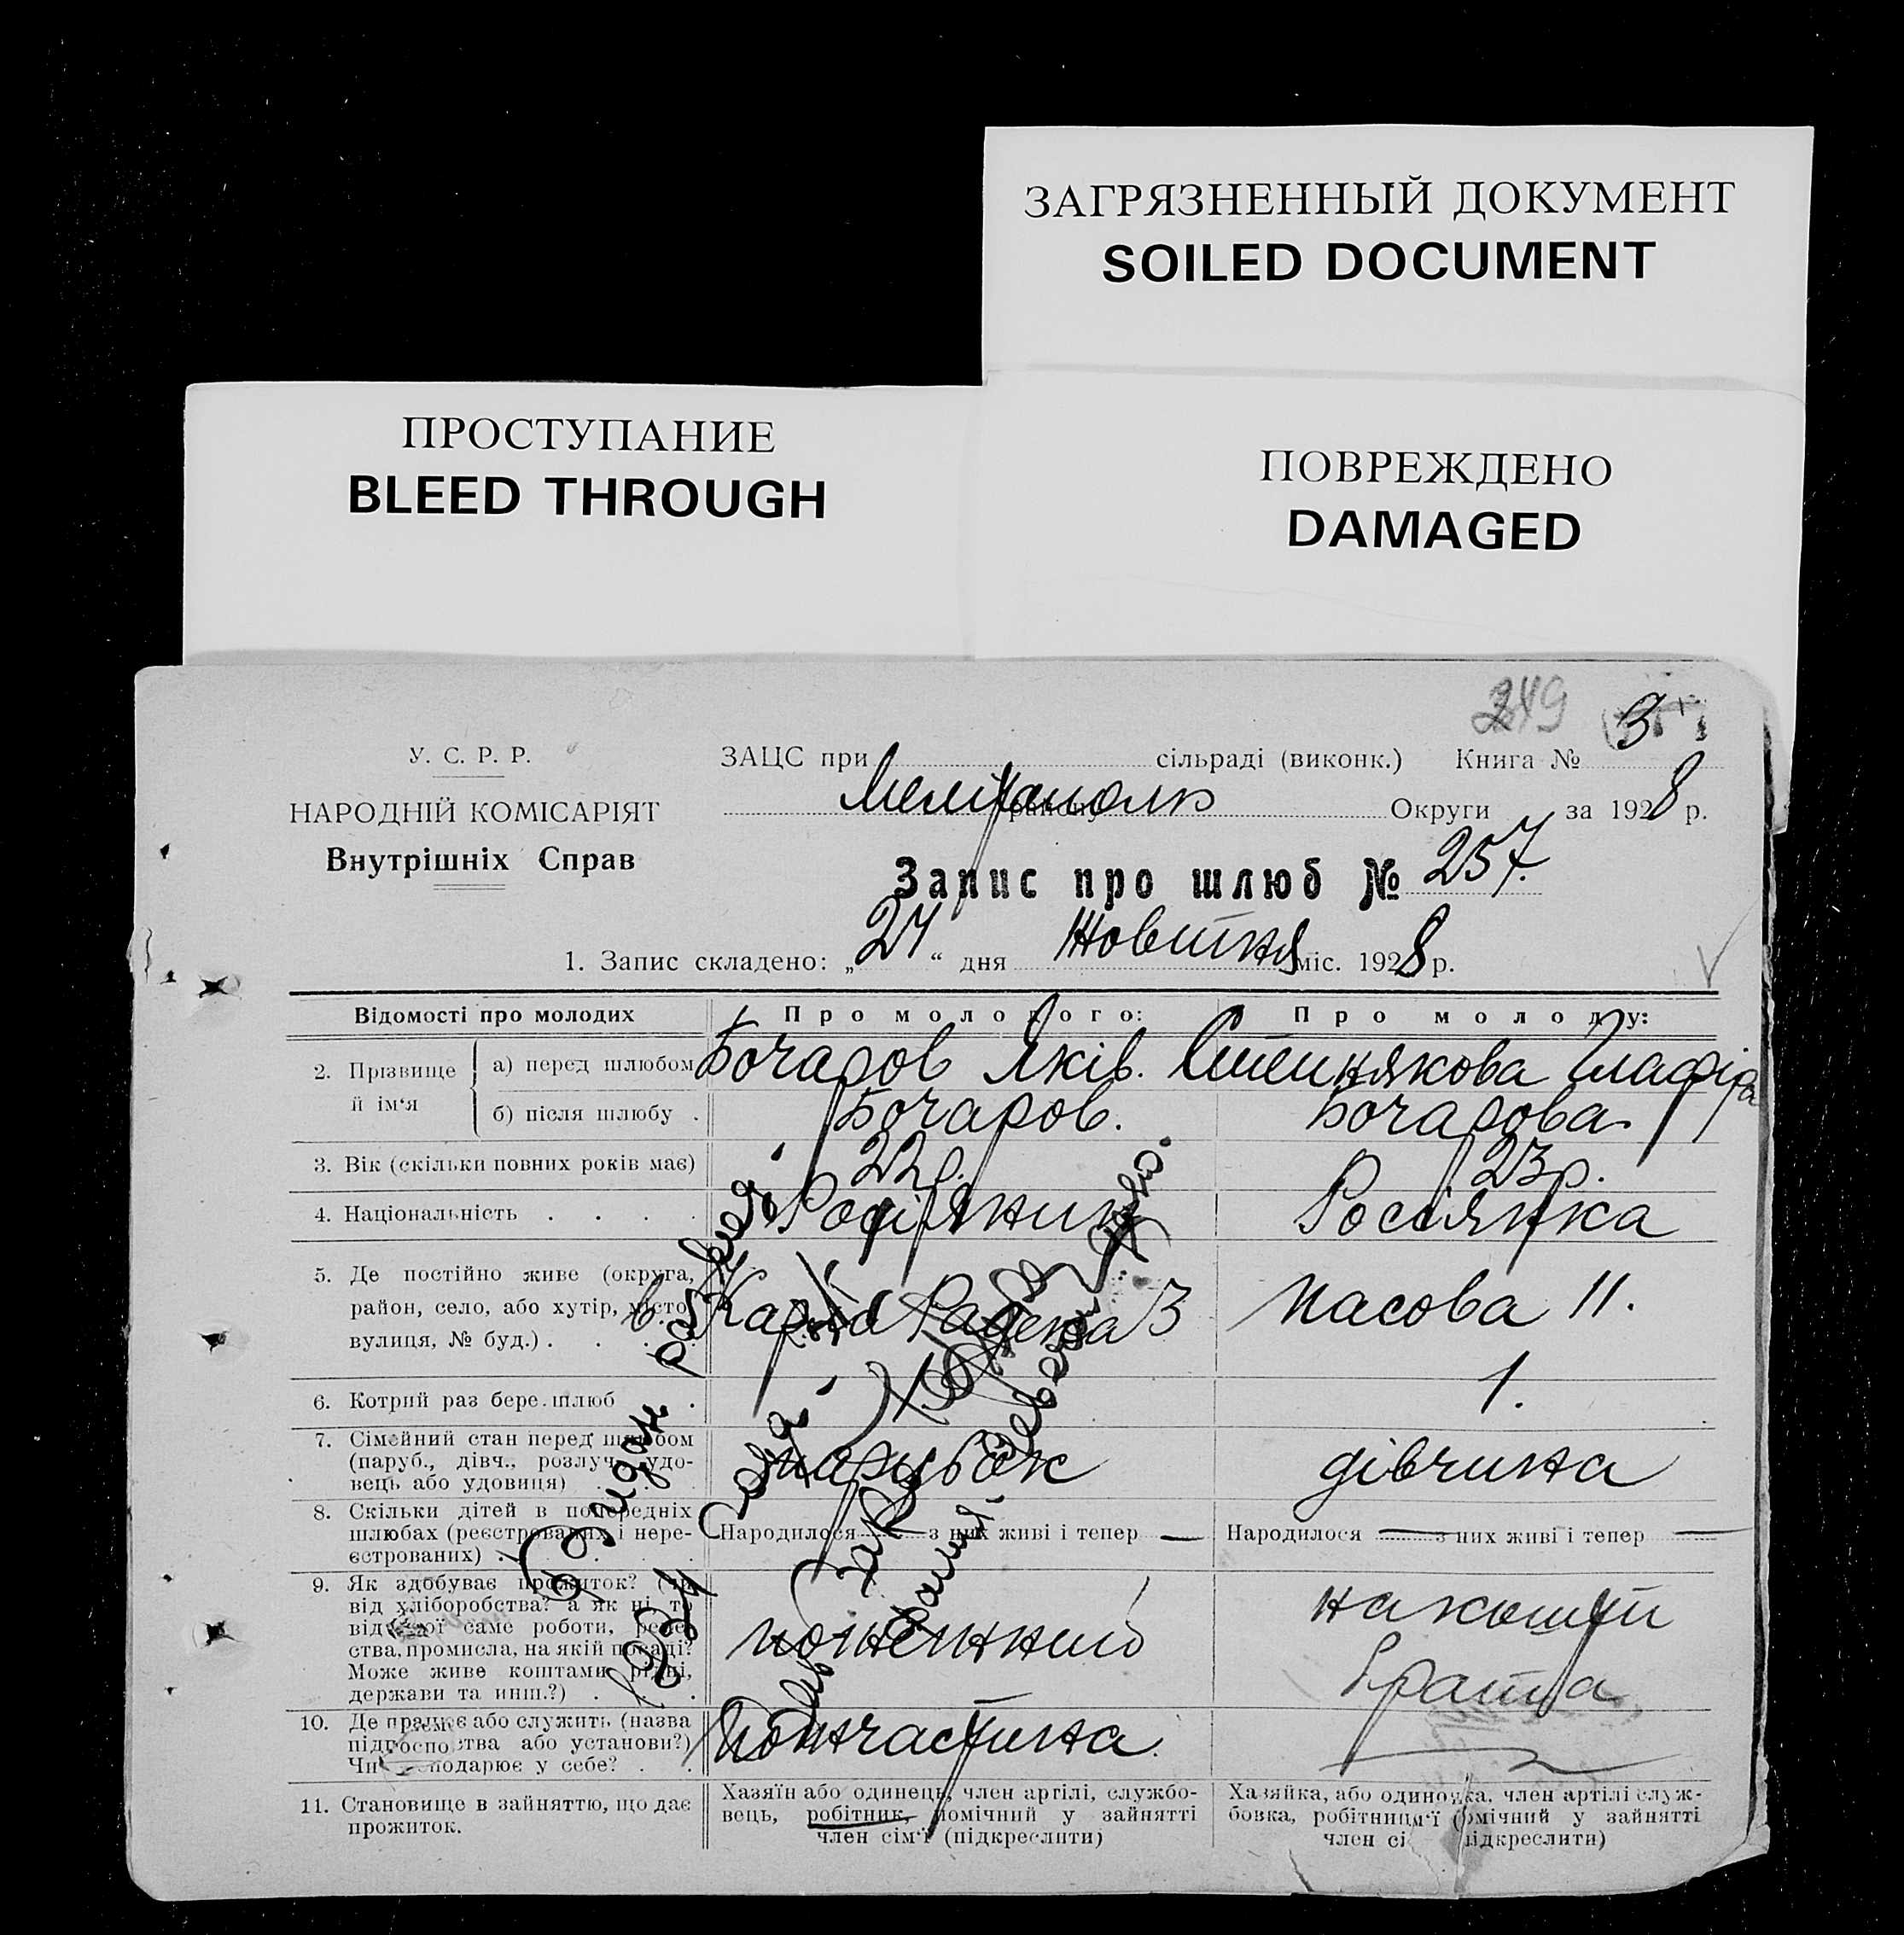 ЗАГРЯЗНЕННЫЙ ДОКУМЕНТ
SOILED DOCUMENT
ПРОСТУПАНИЕ
BLEED THROUGH
ПОВРЕЖДЕНО
DAMAGED
249
У. С. Р. Р.
НАРОДНІЙ КОМІСАРІЯТ
Внутрішніх Справ
ЗАЦС при сільраді (виконк.) Книга № 3
Мелітополь району Округи за 1928 р.
Запис про шлюб № 257.
1. Запис складено: „24“ дня Жовтня міс. 1928 р.
Відомості про молодих
Про молодого:
Про молоду:
2. Прізвище й ім‘я
а) перед шлюбом
Бочаров Яків.
Глафіра
б) після шлюбу .
Бочаров.
Бочарова
3. Вік (скільки повних років має)
22 р.
23 р.
4. Національність . . . .
Росіянин
Росіянка
5. Де постійно живе (округа,
район, село, або хутір, місто,
вулиця, № буд.) . . . .
в. Карла Радека 3
Масова 11.
6. Котрий раз бере шлюб .
1.
7. Сімейний стан перед шлюбом
(паруб., дівч., розлуч., удо-
вець або удовиця) . .
парубок
дівчина
8. Скільки дітей в попередніх
шлюбах (реєстрованих і нере-
єстрованих) . . . .
Народилося — з них живі і тепер —
Народилося — з них живі і тепер —
9. Як здобуває прожиток? (чи
від хліборобства? а як ні, то
від якої саме роботи, ремес-
ства, промисла, на якій посаді?
Може живе коштами рідні,
держави та инш.?) . . .
на кошти
брата
10. Де працює або служить (назва
підгосподарства або установи?)
Чи господарює у себе? . .
11. Становище в зайняттю, що дає
прожиток.
Хазяїн або одинець, член артілі, службо-
вець, робітник, помічний у зайнятті
член сім‘ї (підкреслити)
Хазяйка, або одиночка, член артілі служ-
бовка, робітниця помічний у зайнятті
член сі підкреслити)